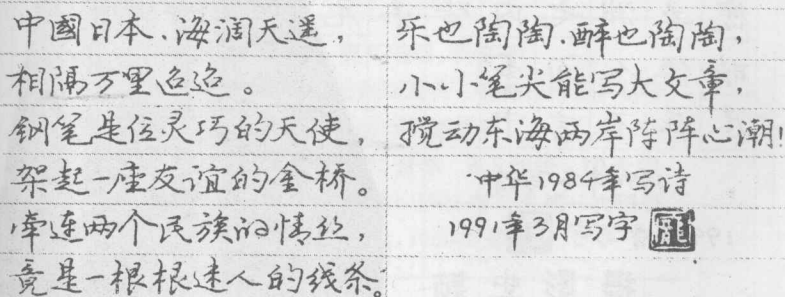 中國日本、海阔天遥，
相隔万里迢迢。
钢笔是位灵巧的天使，
架起一座友谊的金桥。
牵连两个民族的情丝，
竟是一根根迷人的线条。
乐也陶陶、醉也陶陶，
小小笔尖能写大文章，
搅动东海两岸阵阵心潮！
中华1984年写诗
1991年3月写字